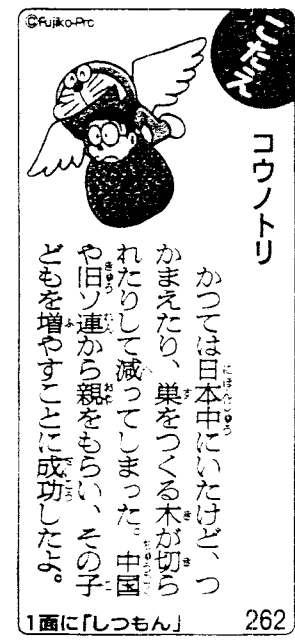 ©Fujiko-Pro
こたえ
コウノトリ
かつては日本中にいたけど、つ
かまえたり、巣をつくる木が切ら
れたりして減ってしまった。中国
や旧ソ連から親をもらい、その子
どもを増やすことに成功したよ。
1面に「しつもん」
262